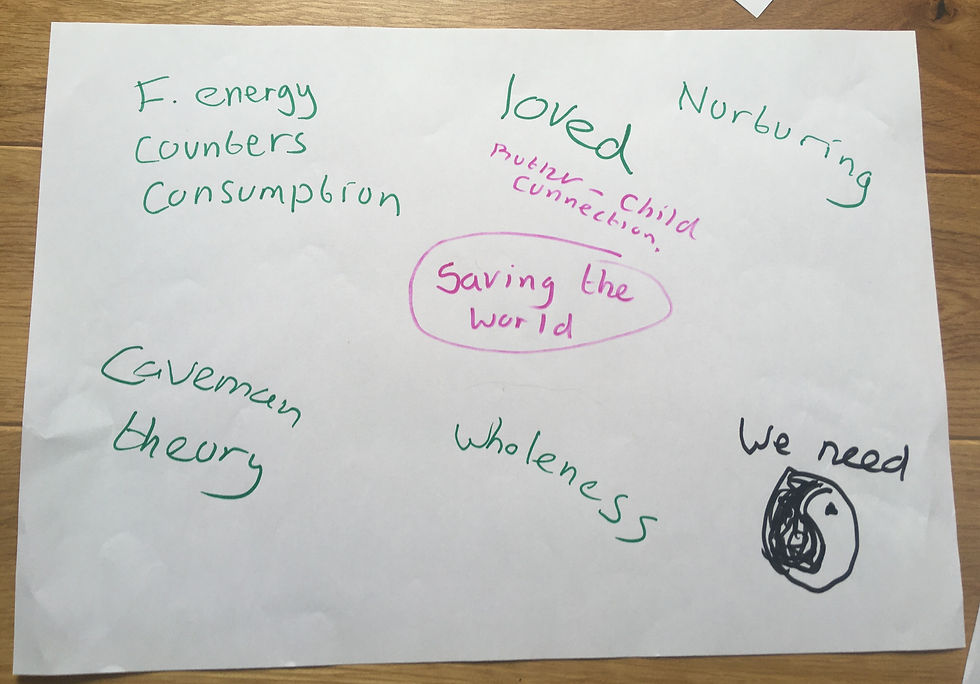 F. energy
counters
consumption
loved
– Child
Connection.
Nurturing
Saving the
world
Caveman
theory
wholeness
We need